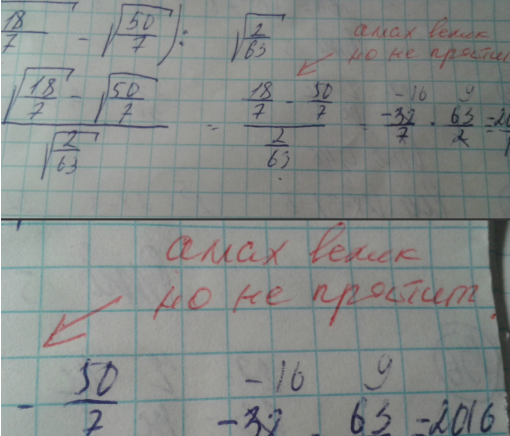 18/7 - √50/7) : √2/63
амах велик
но не прости
(√18/7 - √50/7) / √2/63 = (18/7 - 50/7) / 2/63 = -32/7 · 63/2 = -20
-16 9
амах велик
но не простит.
- 50/7 -32 · 63 = -2016
-16 9